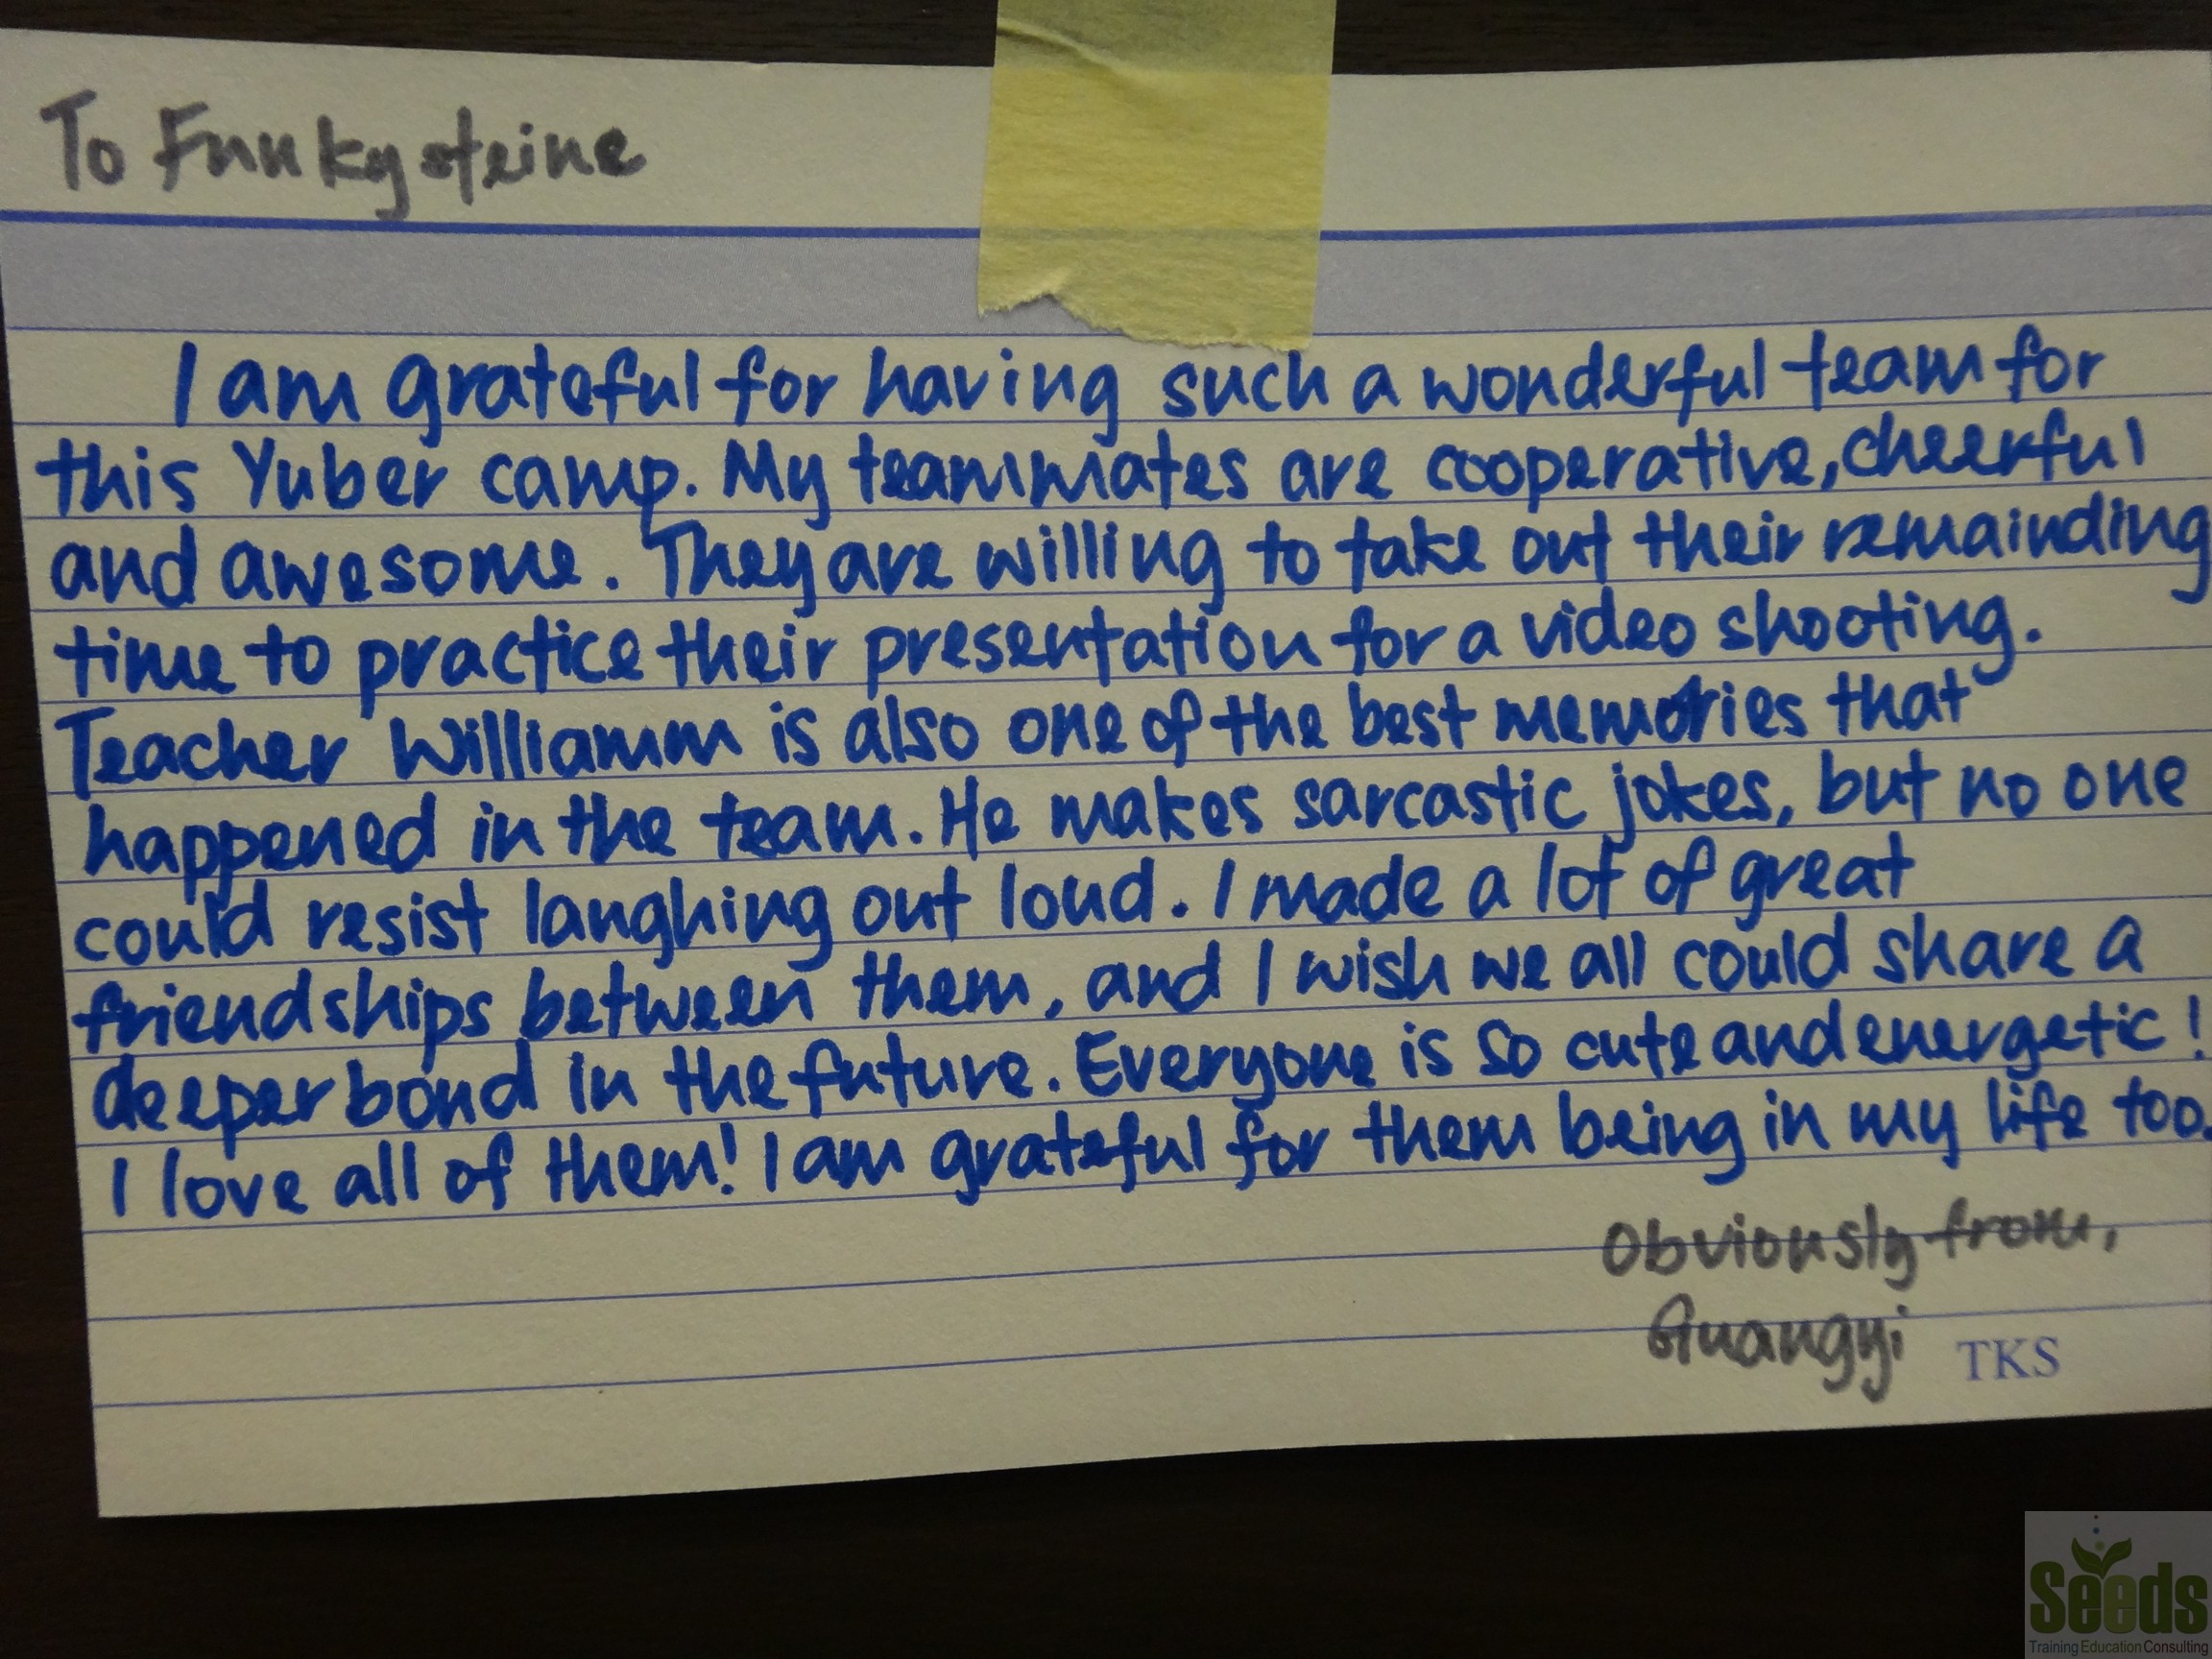 To Funkysteine
I am grateful for having such a wonderful team for
this Yuber camp. My teammates are cooperative, cheerful
and awesome. They are willing to take out their remainding
time to practice their presentation for a video shooting.
Teacher Williamm is also one of the best memories that
happened in the team. He makes sarcastic jokes, but no one
could resist laughing out loud. I made a lot of great
friendships between them, and I wish we all could share a
deeper bond in the future. Everyone is so cute and energetic!
I love all of them! I am grateful for them being in my life too.
Obviously from,
Guangyi
TKS
Seeds
Training Education Consulting